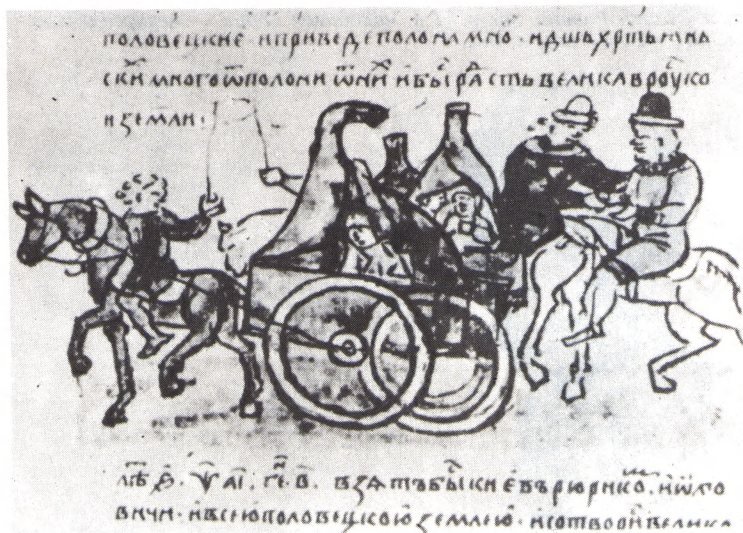 половецкие · и приведе полона мно · и дшь хртьѧнь
скиⷯ много ѿполони ѿ ниⷯ и быⷭ раⷣсть велика в роуско
и земли :
взѧтъ быⷭ киевъ рюрикоⷨ · и ѡлго
вичи · и всею половецкою землею · и сотвори велика